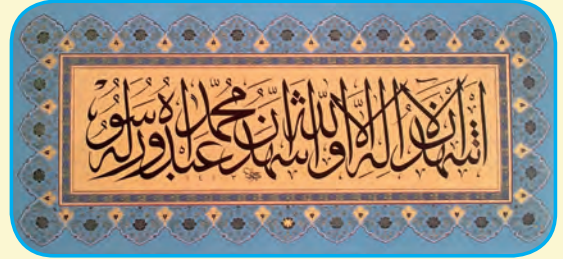 أشهد أن لا إله إلا الله وأشهد أن محمدا عبده ورسوله